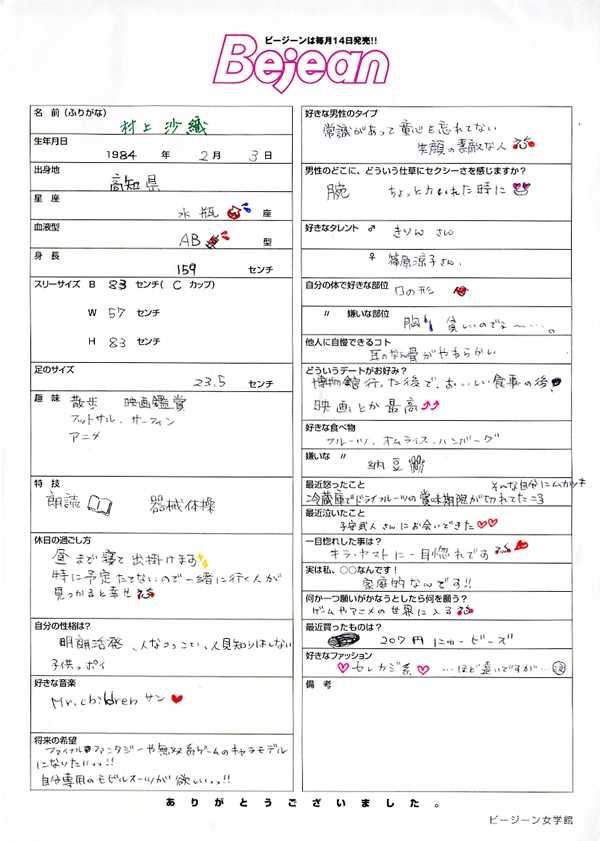 ビージーンは毎月14日発売!!
Bejean
名 前（ふりがな）
村上 沙織
生年月日
1984 年 2月 3日
出身地
高知県
星 座
水瓶 座
血液型
AB 型
身 長
159 センチ
スリーサイズ B 83 センチ( C カップ)
W 57 センチ
H 83 センチ
足のサイズ
23.5 センチ
趣 味
散歩 映画鑑賞
フットサル、サーフィン
アニメ
特 技
朗読 器械体操
休日の過ごし方
昼まで寝て出掛けます
特に予定たてないので一緒に行く人が
見つかると幸せ
自分の性格は?
明朗活発、人なつっこい、人見知りはしない
子供っポイ
好きな音楽
Mr.children サン
将来の希望
ファイナルファンタジーや無双系ゲームのキャラモデル
になりたいっっ!!
自分専用のモビルスーツが欲しいっっ!!
好きな男性のタイプ
常識があって童心を忘れてない
笑顔の素敵な人
男性のどこに、どういう仕草にセクシーさを感じますか?
腕 ちょっと力いれた時に
好きなタレント ♂ きりん さん
♀ 篠原涼子さん、
自分の体で好きな部位 口の形
〃 嫌いな部位
胸 貧しいのでよ〜…。
他人に自慢できるコト
耳のなん骨がやわらかい
どういうデートがお好み?
博物館行った後で、おいしい食事の後、
映画とか最高
好きな食べ物
フルーツ、オムライス、ハンバーグ
嫌いな 〃
納豆
最近怒ったこと そんな自分にムカツキ
冷蔵庫でドライフルーツの賞味期限が切れてたころ
最近泣いたこと
子安武人さんにお会いできた♡♡
一目惚れした事は?
キラ・ヤマトに一目惚れです
実は私、○○なんです!
家庭的なんです!!
何か一つ願いがかなうとしたら何を願う?
ゲームやアニメの世界に入る
最近買ったものは?
207円にゅービーズ
好きなファッション
♡セレカジ系♡ …ほど遠いですが…
備 考
ありがとうございました。
ビージーン女学館